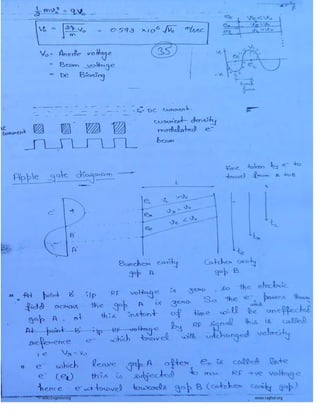 ½mv₀² = qV₀
V₀ = √(2q/m V₀) = 0.593 ×10⁶ √V₀ m/sec
V₀ = Anodic voltage
= Beam voltage
= DC Biasing
35
DC current
current density
modulated e⁻
beam
current
Apple gate diagram →
time taken by e⁻ to
travel from A to B
L
e⁻
+
B
A
Buncher cavity
gap A
Catcher cavity
gap B
* At point B i/p RF voltage is zero, so the electric
field across the gap A is zero. So the e⁻ passes through
gap A at this instant of time will be uneffected
by RF signal this is called
At point B i/p RF voltage
reference e⁻ which travel with unchanged velocity
i.e
* e⁻ which leave gap A after e is called late
e⁻ (eℓ) this is subjected to max RF +ve voltage
hence e⁻ travel towards gap B (catcher cavity gap)
www.raghul.org